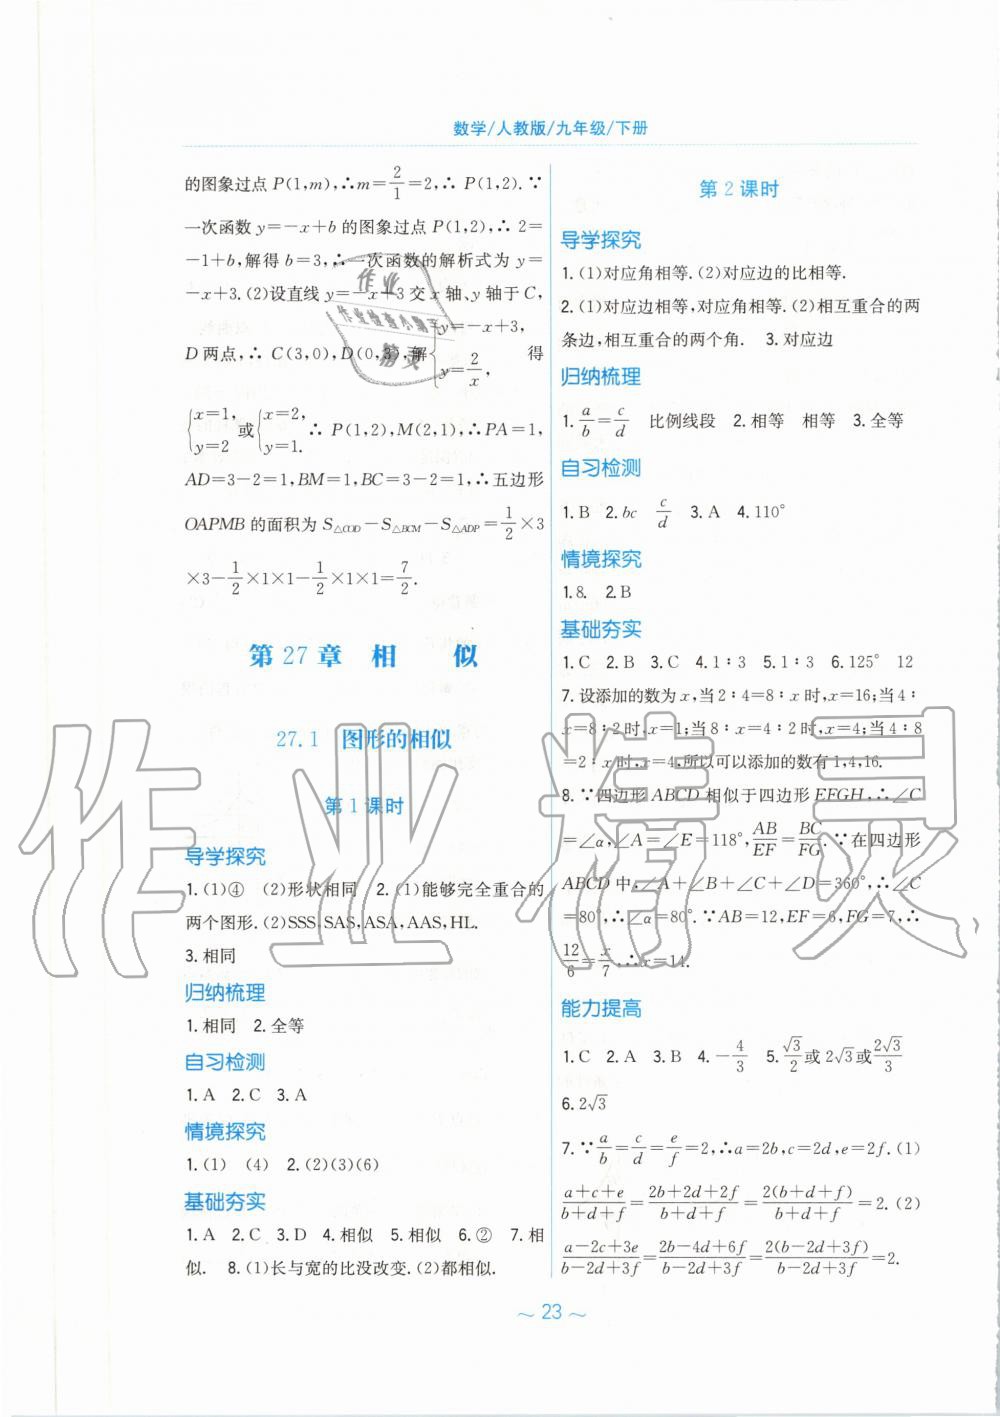 数学/人教版/九年级/下册
的图象过点 P(1,m),∴m=2/1=2,∴ P(1,2).∵
一次函数 y=-x+b 的图象过点 P(1,2),∴ 2=
-1+b,解得 b=3,∴一次函数的解析式为 y=
-x+3.(2)设直线 y=-x+3 交 x 轴、y 轴于 C,
D 两点,∴ C(3,0),D(0,3),解{y=-x+3, y=2/x, 得
{x=1, y=2 或{x=2, y=1. ∴ P(1,2),M(2,1),∴PA=1,
AD=3-2=1,BM=1,BC=3-2=1,∴五边形
OAPMB 的面积为 S△COD-S△BCM-S△ADP=1/2×3
×3-1/2×1×1-1/2×1×1=7/2.
第 27 章 相 似
27.1 图形的相似
第 1 课时
导学探究
1.(1)④ (2)形状相同 2.(1)能够完全重合的
两个图形.(2)SSS,SAS,ASA,AAS,HL.
3.相同
归纳梳理
1.相同 2.全等
自习检测
1.A 2.C 3.A
情境探究
1.(1) (4) 2.(2)(3)(6)
基础夯实
1.A 2.C 3.D 4.相似 5.相似 6.② 7.相
似. 8.(1)长与宽的比没改变.(2)都相似.
第 2 课时
导学探究
1.(1)对应角相等.(2)对应边的比相等.
2.(1)对应边相等,对应角相等.(2)相互重合的两
条边,相互重合的两个角. 3.对应边
归纳梳理
1.a/b=c/d 比例线段 2.相等 相等 3.全等
自习检测
1.B 2.bc c/d 3.A 4.110°
情境探究
1.8. 2.B
基础夯实
1.C 2.B 3.C 4.1∶3 5.1∶3 6.125° 12
7.设添加的数为 x,当 2∶4=8∶x 时,x=16;当 4∶
x=8∶2时,x=1;当 8∶x=4∶2时,x=4;当 4∶8
=2∶x 时,x=4,所以可以添加的数有 1,4,16.
8.∵四边形 ABCD 相似于四边形 EFGH,∴∠C
=∠α,∠A=∠E=118°,AB/EF=BC/FG.∵在四边形
ABCD 中,∠A+∠B+∠C+∠D=360°,∴∠C
=80°,∴∠α=80°.∵AB=12,EF=6,FG=7,∴
12/6=x/7,∴x=14.
能力提高
1.C 2.A 3.B 4.-4/3 5.√3/2或 2√3或2√3/3
6.2√3
7.∵a/b=c/d=e/f=2,∴a=2b,c=2d,e=2f.(1)
a+c+e/b+d+f=2b+2d+2f/b+d+f=2(b+d+f)/b+d+f=2.(2)
a-2c+3e/b-2d+3f=2b-4d+6f/b-2d+3f=2(b-2d+3f)/b-2d+3f=2.
~ 23 ~
作业精灵
作业
作业检查小帮手
精灵